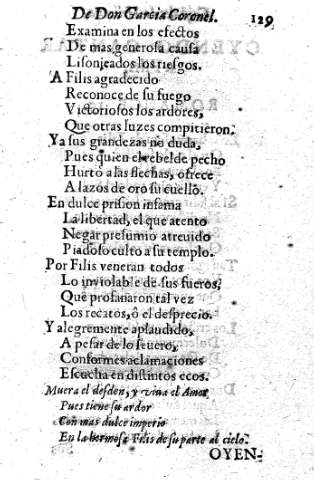 De Don Garcia Coronel. 129
Examina en los efectos
De mas generosa causa
Lisonjeados los riesgos.
A Filis agradecido
Reconoce de su fuego
Victoriosos los ardores,
Que otras luzes compitieron.
Ya sus grandezas no duda,
Pues quien el rebelde pecho
Hurtò a las flechas, ofrece
A lazos de oro su cuello.
En dulce prision infama
La libertad, el que atento
Negar presumio atreuido
Piadoso culto a su templo.
Por Filis veneran todos
Lo inviolable de sus fueros,
Que profanaron tal vez
Los recatos, ò el desprecio.
Y alegremente aplaudido,
A pesar de lo seuero,
Conformes aclamaciones
Escucha en distintos ecos.
Muera el desden, y viva el Amor
Pues tiene su ardor
Con mas dulce imperio
En la hermosa Filis de su parte al cielo.
OYEN-